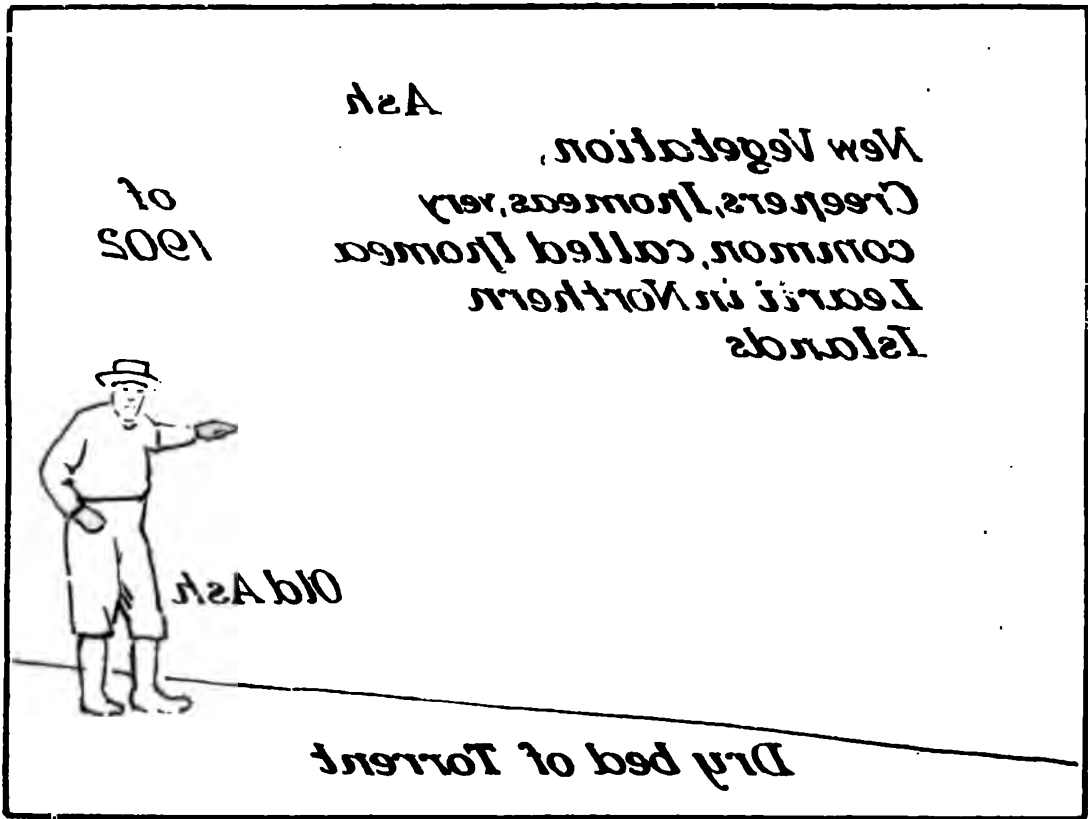 Ash
New Vegetation,
Creepers, Ipomeas, very
common, called Ipomea
Learii in Northern
Islands
of
1902
Old Ash
Dry bed of Torrent